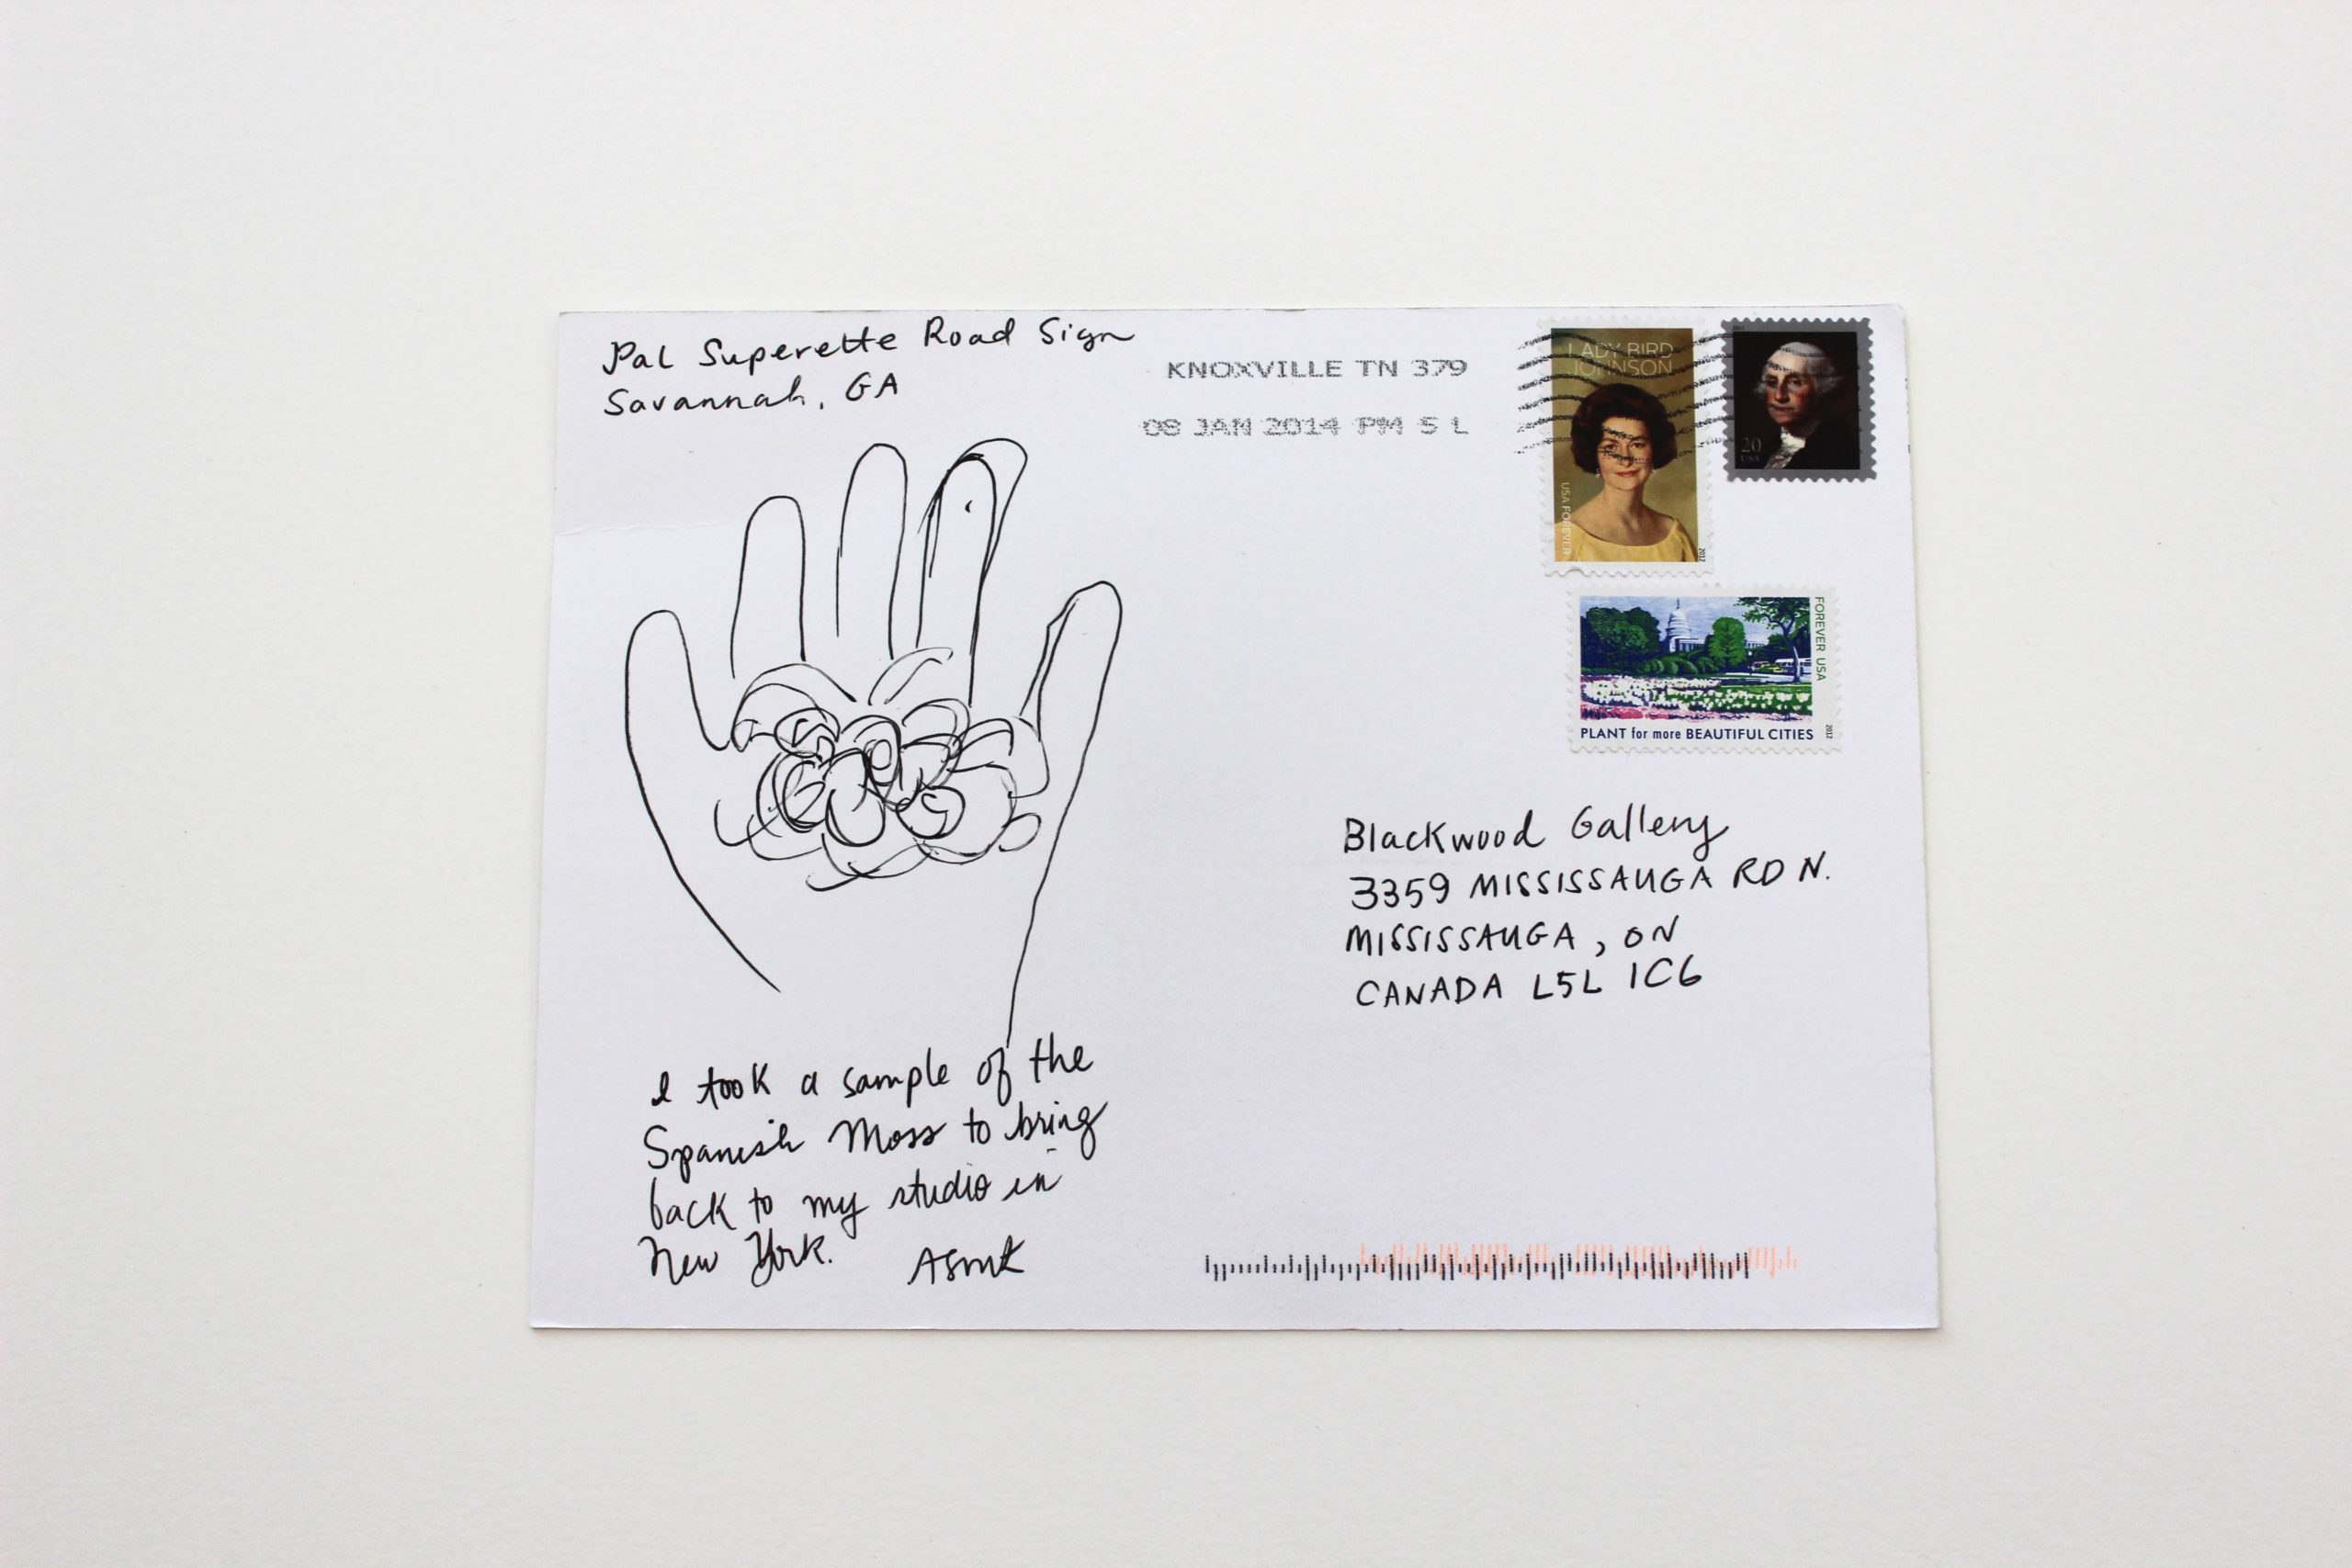 Pal Superette Road Sign
Savannah, GA
KNOXVILLE TN 379
08 JAN 2014 PM 5 L
LADY BIRD
JOHNSON
USA FOREVER
2012
20
USA
FOREVER USA
2012
PLANT for more BEAUTIFUL CITIES
Blackwood Gallery
3359 MISSISSAUGA RD N.
MISSISSAUGA, ON
CANADA L5L 1C6
I took a sample of the
Spanish Moss to bring
back to my studio in
New York.